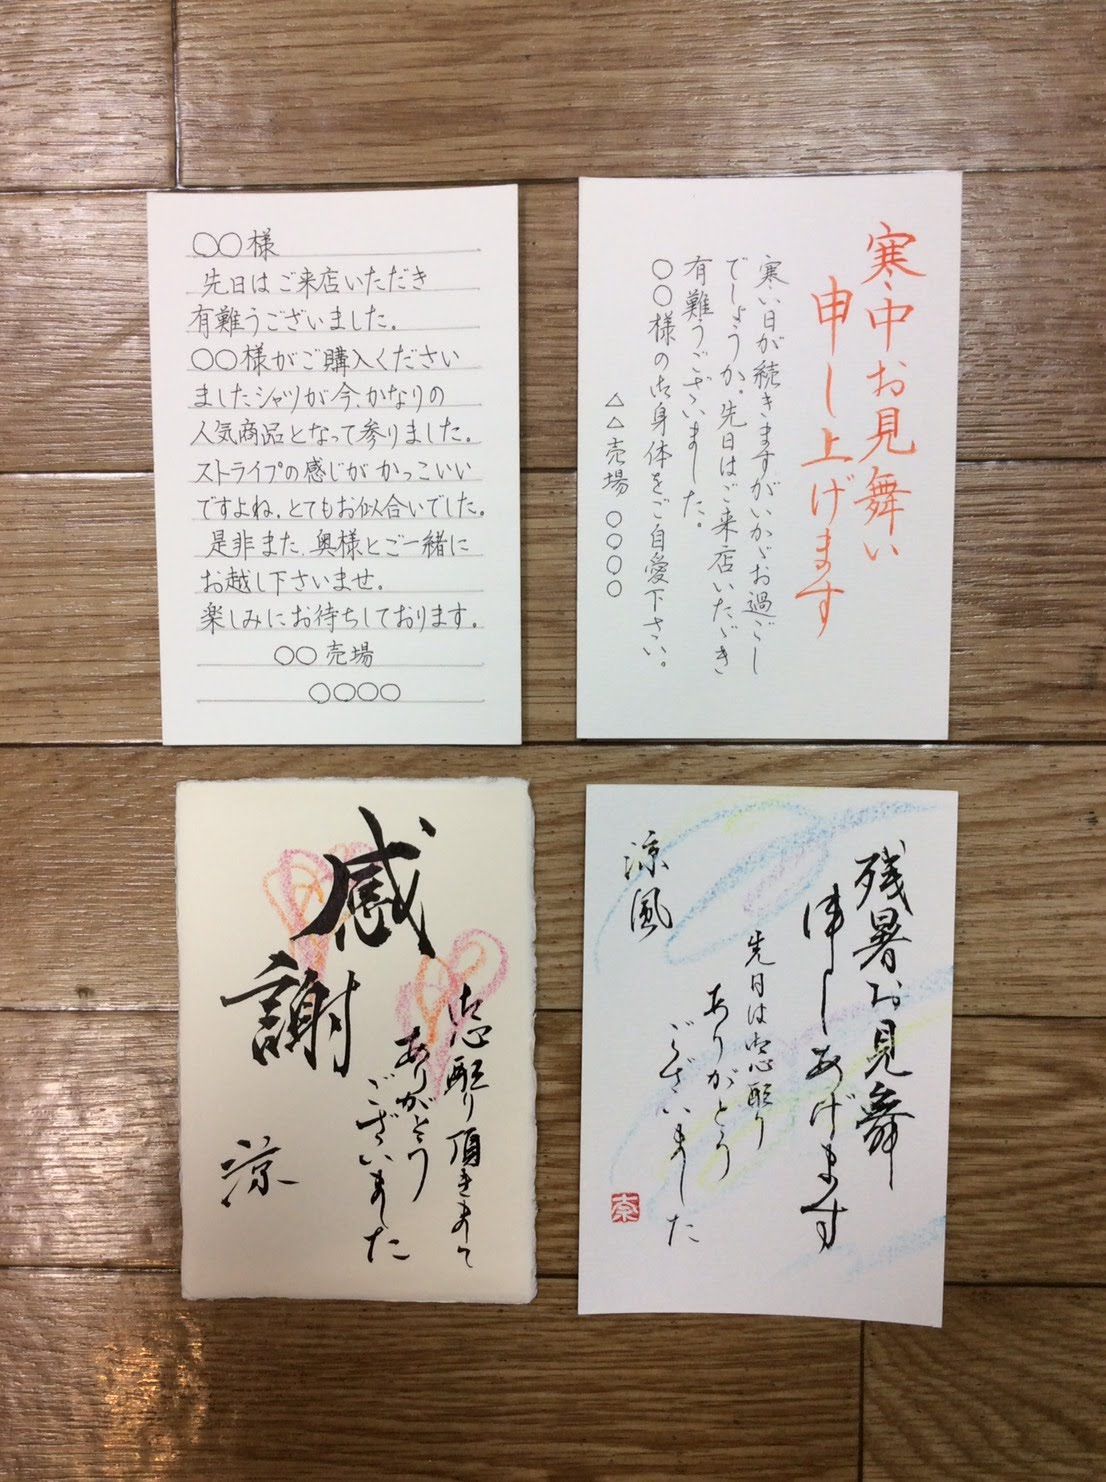 〇〇様
先日はご来店いただき
有難うございました。
〇〇様がご購入ください
ましたシャツが今、かなりの
人気商品となって参りました。
ストライプの感じがかっこいい
ですよね。とてもお似合いでした。
是非また、奥様とご一緒に
お越し下さいませ。
楽しみにお待ちしております。
〇〇売場
〇〇〇〇
寒中お見舞い
申し上げます
寒い日が続きますがいかがお過ごし
でしょうか。先日はご来店いただき
有難うございました。
〇〇様の御身体をご自愛下さい。
△△売場 〇〇〇〇
感
謝
御心配り頂きまして
ありがとう
ございました
涼
残暑お見舞
申しあげます
先日は御心配り
ありがとう
ございました
涼風